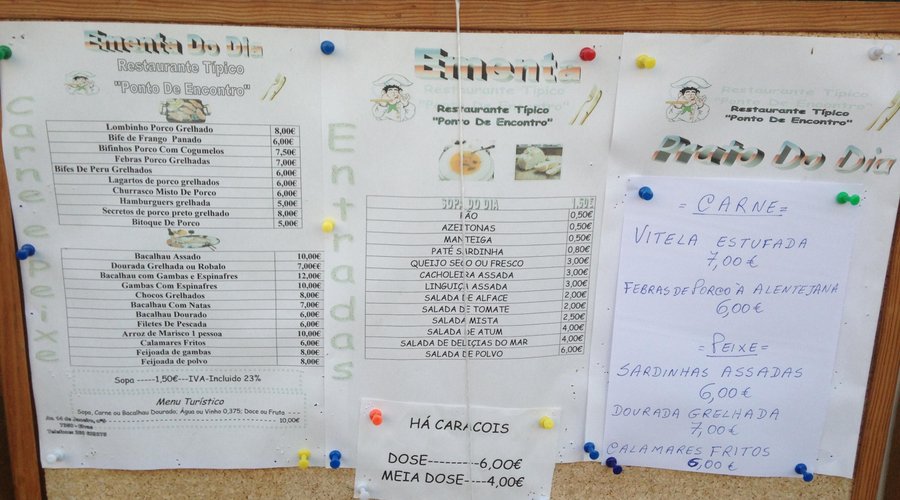 Ementa Do Dia
Restaurante Típico
"Ponto De Encontro"
Carne e Peixe
Lombinho Porco Grelhado 8,00€
Bife de Frango Panado 6,00€
Bifinhos Porco Com Cogumelos 7,50€
Febras Porco Grelhadas 7,00€
Bifes De Peru Grelhados 6,00€
Lagartos de porco grelhados 6,00€
Churrasco Misto De Porco 6,00€
Hamburguers grelhada 5,00€
Secretos de porco preto grelhado 8,00€
Bitoque De Porco 5,00€
Bacalhau Assado 10,00€
Dourada Grelhada ou Robalo 7,00€
Bacalhau com Gambas e Espinafres 12,00€
Gambas Com Espinafres 10,00€
Chocos Grelhados 8,00€
Bacalhau Com Natas 7,00€
Bacalhau Dourado 6,00€
Filetes De Pescada 6,00€
Arroz de Marisco 1 pessoa 10,00€
Calamares Fritos 6,00€
Feijoada de gambas 8,00€
Feijoada de polvo 8,00€
Sopa -----1,50€---IVA-Incluido 23%
Menu Turístico
Sopa, Carne ou Bacalhau Dourado; Água ou Vinho 0,375; Doce ou Fruta
10,00€
Ementa
Restaurante Típico
"Ponto De Encontro"
Entradas
SOPA DO DIA 1.50€
PÃO 0,50€
AZEITONAS 0,50€
MANTEIGA 0,50€
PATÉ SARDINHA 0,80€
QUEIJO SECO OU FRESCO 3,00€
CACHOLEIRA ASSADA 3,00€
LINGUIÇA ASSADA 3,00€
SALADA DE ALFACE 2,00€
SALADA DE TOMATE 2,00€
SALADA MISTA 2,50€
SALADA DE ATUM 4,00€
SALADA DE DELICIAS DO MAR 4,00€
SALADA DE POLVO 6,00€
HÁ CARACOIS
DOSE---------6,00€
MEIA DOSE----4,00€
Restaurante Típico
"Ponto De Encontro"
Prato Do Dia
= CARNE =
VITELA ESTUFADA
7,00€
FEBRAS DE PORCO À ALENTEJANA
6,00€
= PEIXE =
SARDINHAS ASSADAS
6,00€
DOURADA GRELHADA
7,00€
CALAMARES FRITOS
6,00€